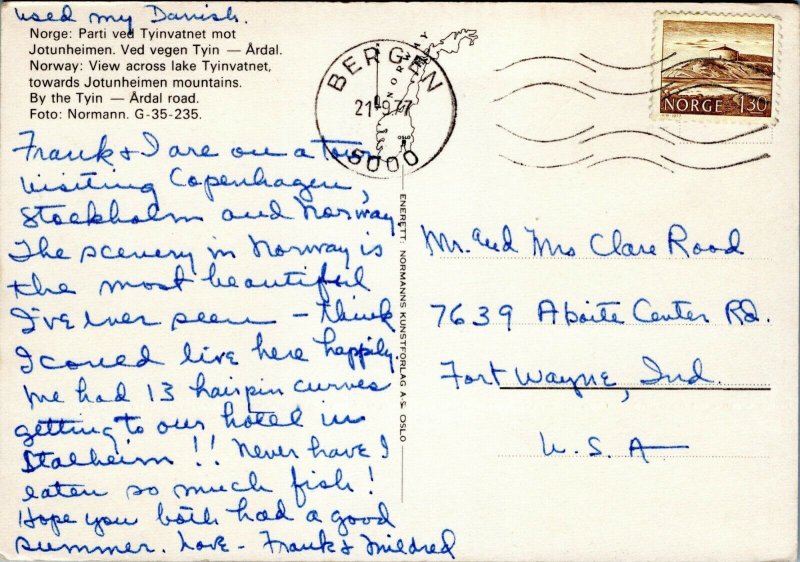 used my Danish.
Norge: Parti ved Tyinvatnet mot
Jotunheimen. Ved vegen Tyin — Årdal.
Norway: View across lake Tyinvatnet,
towards Jotunheimen mountains.
By the Tyin — Årdal road.
Foto: Normann. G-35-235.
Frank & I are on a tour
visiting Copenhagen,
Stockholm and Norway
The scenery in Norway is
the most beautiful
I've ever seen - think
I could live here happily.
We had 13 hairpin curves
getting to our hotel in
Stalheim!! Never have I
eaten so much fish!
Hope you both had a good
summer. Love - Frank & Mildred
ENERETT: NORMANNS KUNSTFORLAG A.S. OSLO
BERGEN
NORWAY
21-9.77
OSLO
5000
NORGE 1.30
Mr. and Mrs Clare Rood
7639 Aboite Center Rd.
Fort Wayne, Ind.
U.S.A